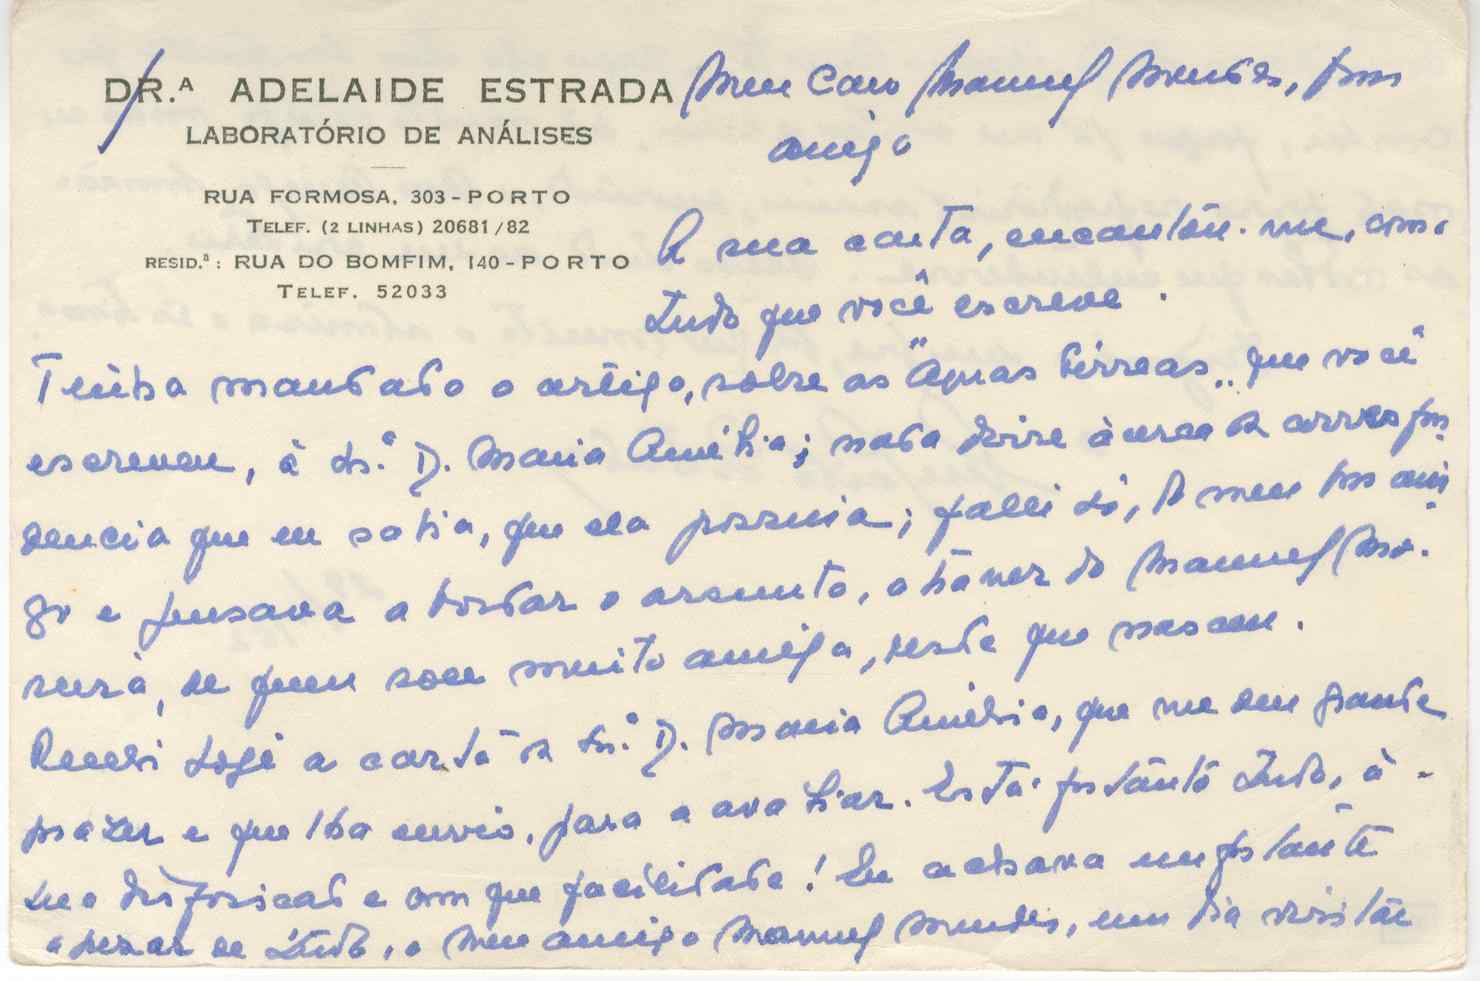 DR.ª ADELAIDE ESTRADA
LABORATÓRIO DE ANÁLISES
RUA FORMOSA, 303 - PORTO
TELEF. (2 LINHAS) 20681/82
RESID.ª: RUA DO BOMFIM, 140 - PORTO
TELEF. 52033
Meu Caro Manuel Mendes, bom
amigo
A sua carta, encantou-me, como
tudo que você escreve.
Tenha mandado o artigo, sobre as "Águas Férreas" que você
escreveu, à Sr.ª D. Maria Amélia; nada disse àcerca da corres pon
dencia que eu sabia, que ela possuia; falei só, do meu bom ami
go e pensava abordar o assunto, através do Manuel Mo-
reira, de quem sou muito amiga, desde que nasceu.
Recebi hoje a carta da Sr.ª D. Maria Amélia, que me deu grande
prazer e que lha envio, para a avaliar. Está portanto tudo, à
sua disposição e com que facilidade! Eu achava importante
apezar de tudo, o meu amigo Manuel Mendes, um dia visitar